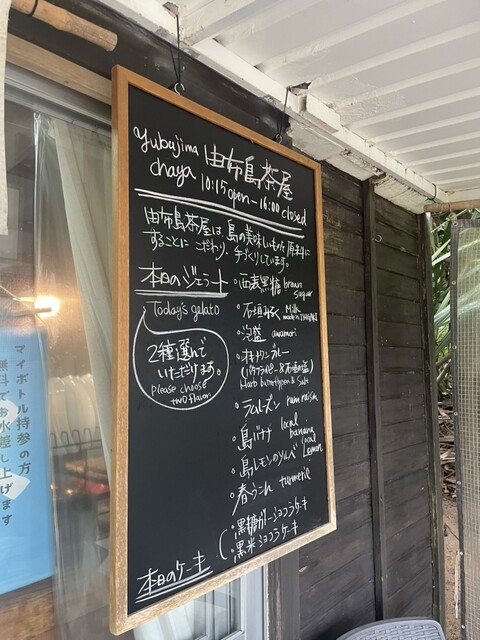 yubujima 由布島茶屋
chaya 10:15 open~16:00 closed
由布島茶屋は、島の美味しいものを原材料に
することにこだわり、手づくりしています。
本日のジェラート
Today's gelato
2種選んで
いただけます。
please choose
two flavor
・西表黒糖 brown sugar
・石垣みるく Milk
・泡盛 awamori
(バタフライピー&石垣の塩)
・ラムレーズン rum raisin
・島バナナ local banana
・島レモンのソルベ local Lemon
・春うこん turmeric
本日のケーキ
・黒糖ガトーショコラケーキ
・黒米ショコラケーキ
マイボトル持参の方
無料でお水差し上げます